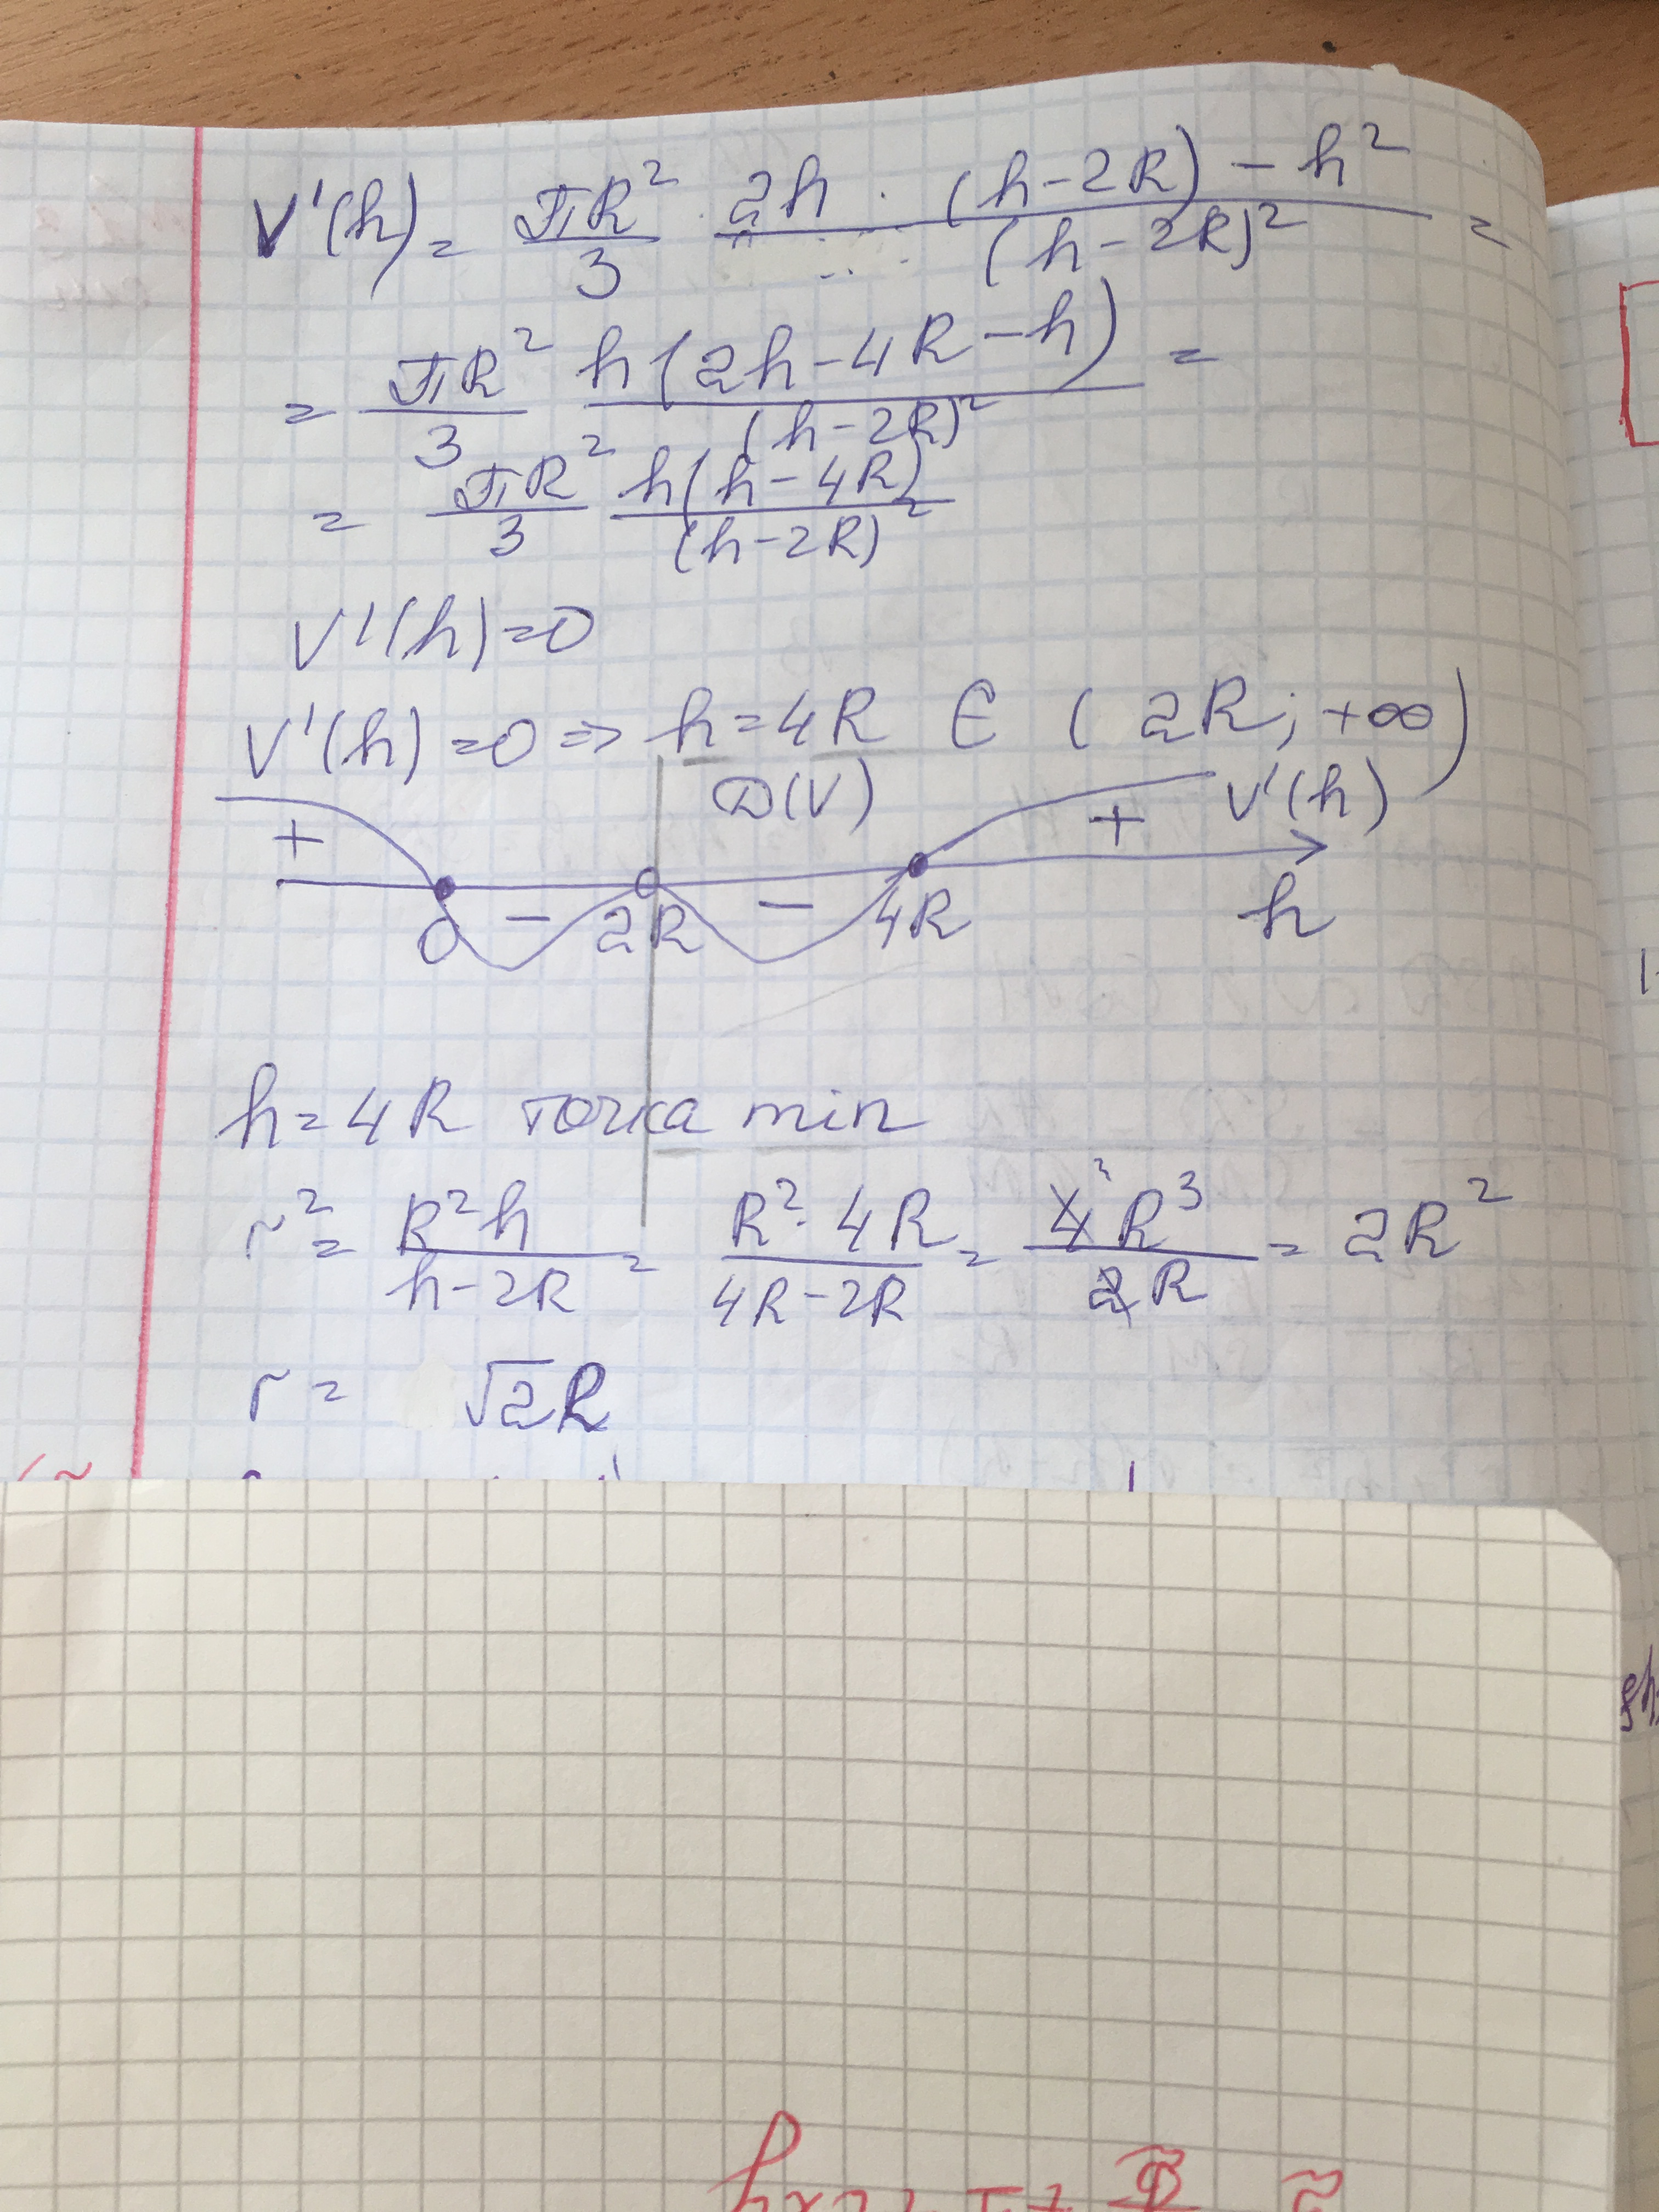 V'(h) = πR²/3 · 2h · (h-2R) - h² / (h-2R)² =
= πR²/3 h(2h-4R-h) / (h-2R)² =
= πR²/3 h(h-4R) / (h-2R)²
V'(h)=0
V'(h)=0 => h=4R ∈ (2R; +∞)
D(V) V'(h)
+ - - +
0 2R 4R h
h=4R точка min
r² = R²h / h-2R = R²·4R / 4R-2R = 4² R³ / 2R = 2R²
r = √2R